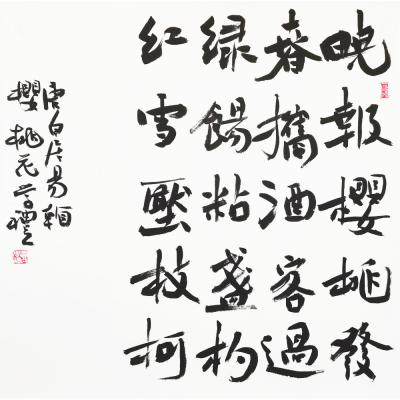 晚報櫻桃發
春攜酒客過
綠餳粘盞杓
紅雪壓枝柯
唐白居易
櫻桃花